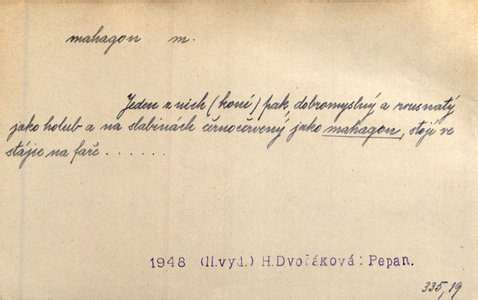 mahagon m.
Jeden z nich (koní) pak, dobromyslný a rousnatý
jako holub a na slabinách černočervený, jako mahagon, stojí ve
stájie na faře . . . . . .
1948 (II.vyd.) H.Dvořáková: Pepan.
335,19